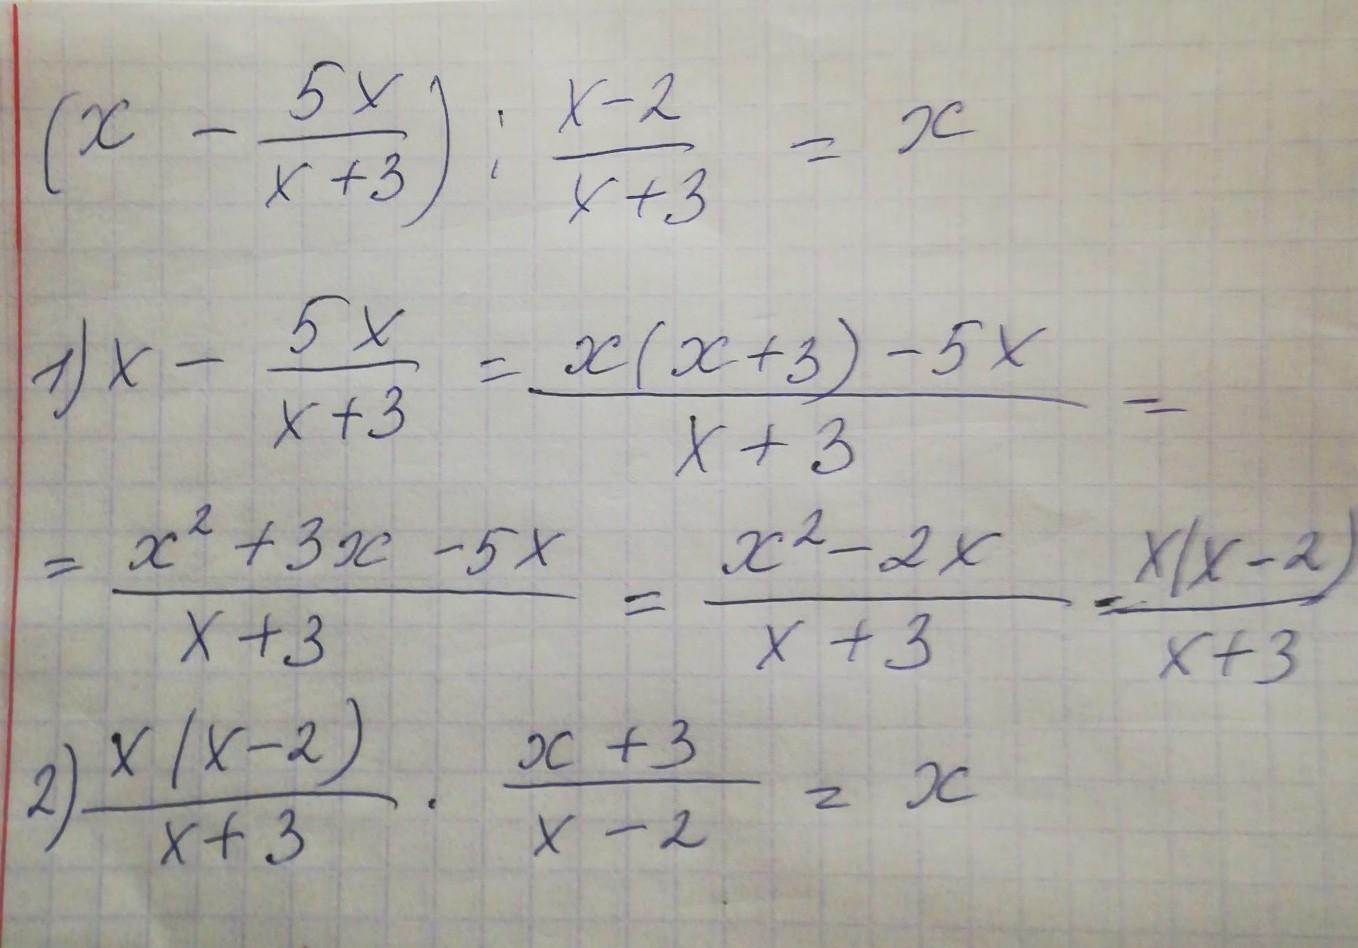 (x - 5x/(x+3)) : (x-2)/(x+3) = x
1) x - 5x/(x+3) = (x(x+3)-5x)/(x+3) =
= (x²+3x-5x)/(x+3) = (x²-2x)/(x+3) = x(x-2)/(x+3)
2) x(x-2)/(x+3) · (x+3)/(x-2) = x